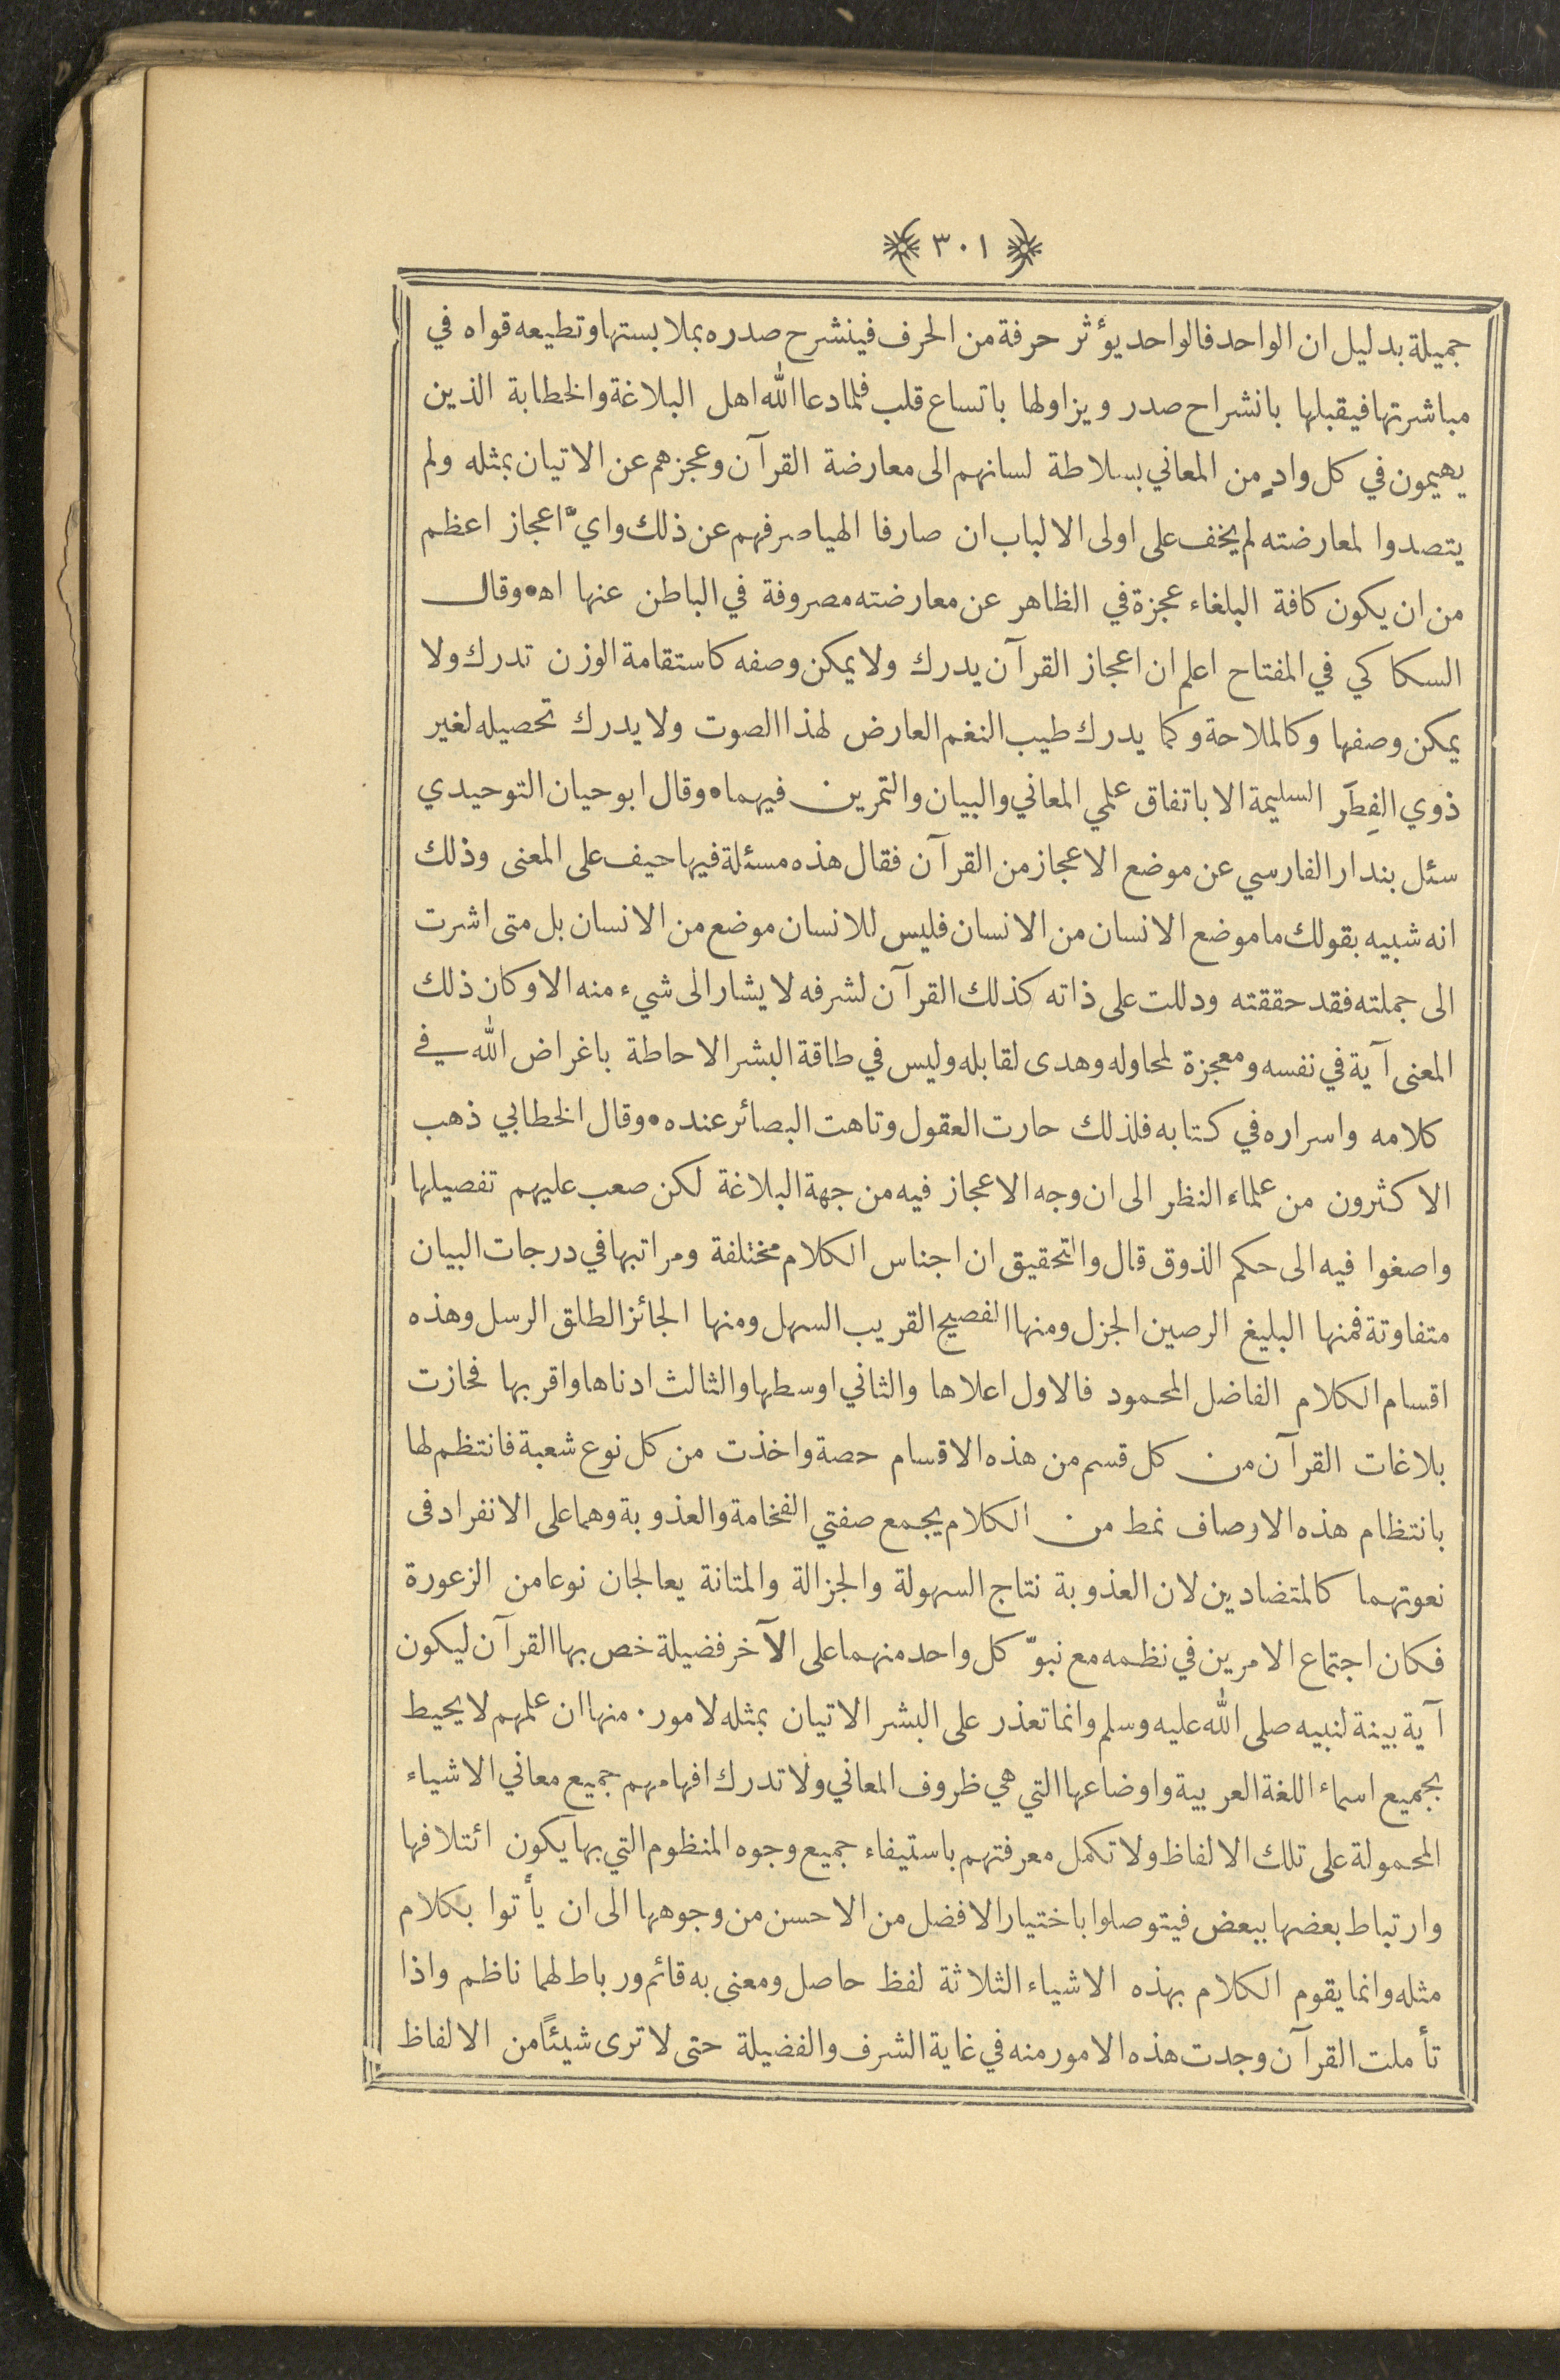 ﴿ ٣٠١ ﴾
جميلة بدليل ان الواحد فالواحد يؤثر حرفة من الحرف فينشرح صدره بملابستها وتطيعه قواه في
مباشرتها فيقبلها بانشراح صدر ويزاولها باتساع قلب فلما دعا الله اهل البلاغة والخطابة الذين
يهيمون في كل وادٍ من المعاني بسلاطة لسانهم الى معارضة القرآن وعجزهم عن الاتيان بمثله ولم
يتصدوا لمعارضته لم يخف على اولى الالباب ان صارفا الهيا صرفهم عن ذلك واي اعجاز اعظم
من ان يكون كافة البلغاء عجزة في الظاهر عن معارضته مصروفة في الباطن عنها اه• وقال
السكاكي في المفتاح اعلم ان اعجاز القرآن يدرك ولا يمكن وصفه كاستقامة الوزن تدرك ولا
يمكن وصفها وكالملاحة وكما يدرك طيب النغم العارض لهذا الصوت ولا يدرك تحصيله لغير
ذوي الفِطَر السليمة الا باتفاق علمي المعاني والبيان والتمرين فيهما• وقال ابو حيان التوحيدي
سئل بندار الفارسي عن موضع الاعجاز من القرآن فقال هذه مسئلة فيها حيف على المعنى وذلك
انه شبيه بقولك ما موضع الانسان من الانسان فليس للانسان موضع من الانسان بل متى اشرت
الى جملته فقد حققته ودللت على ذاته كذلك القرآن لشرفه لا يشار الى شيء منه الا وكان ذلك
المعنى آية في نفسه ومعجزة لمحاوله وهدى لقابله وليس في طاقة البشر الاحاطة باغراض الله في
كلامه واسراره في كتابه فلذلك حارت العقول وتاهت البصائر عنده• وقال الخطابي ذهب
الاكثرون من علماء النظر الى ان وجه الاعجاز فيه من جهة البلاغة لكن صعب عليهم تفصيلها
واصغوا فيه الى حكم الذوق قال والتحقيق ان اجناس الكلام مختلفة ومراتبها في درجات البيان
متفاوتة فمنها البليغ الرصين الجزل ومنها الفصيح القريب السهل ومنها الجائز الطلق الرسل وهذه
اقسام الكلام الفاضل المحمود فالاول اعلاها والثاني اوسطها والثالث ادناها واقربها فحازت
بلاغات القرآن من كل قسم من هذه الاقسام حصة واخذت من كل نوع شعبة فانتظم لها
بانتظام هذه الاوصاف نمط من الكلام يجمع صفتي الفخامة والعذوبة وهما على الانفراد فى
نعوتهما كالمتضادين لان العذوبة نتاج السهولة والجزالة والمتانة يعالجان نوعا من الزعورة
فكان اجتماع الامرين في نظمه مع نبوّ كل واحد منهما على الآخر فضيلة خص بها القرآن ليكون
آية بينة لنبيه صلى الله عليه وسلم وانما تعذر على البشر الاتيان بمثله لامور. منها ان علمهم لا يحيط
بجميع اسماء اللغة العربية واوضاعها التي هي ظروف المعاني ولا تدرك افهامهم جميع معاني الاشياء
المحمولة على تلك الالفاظ ولا تكمل معرفتهم باستيفاء جميع وجوه المنظوم التي بها يكون ائتلافها
وارتباط بعضها ببعض فيتوصلوا باختيار الافضل من الاحسن من وجوهها الى ان يأتوا بكلام
مثله وانما يقوم الكلام بهذه الاشياء الثلاثة لفظ حاصل ومعنى به قائم ورباط لهما ناظم واذا
تأملت القرآن وجدت هذه الامور منه في غاية الشرف والفضيلة حتى لا ترى شيئًا من الالفاظ